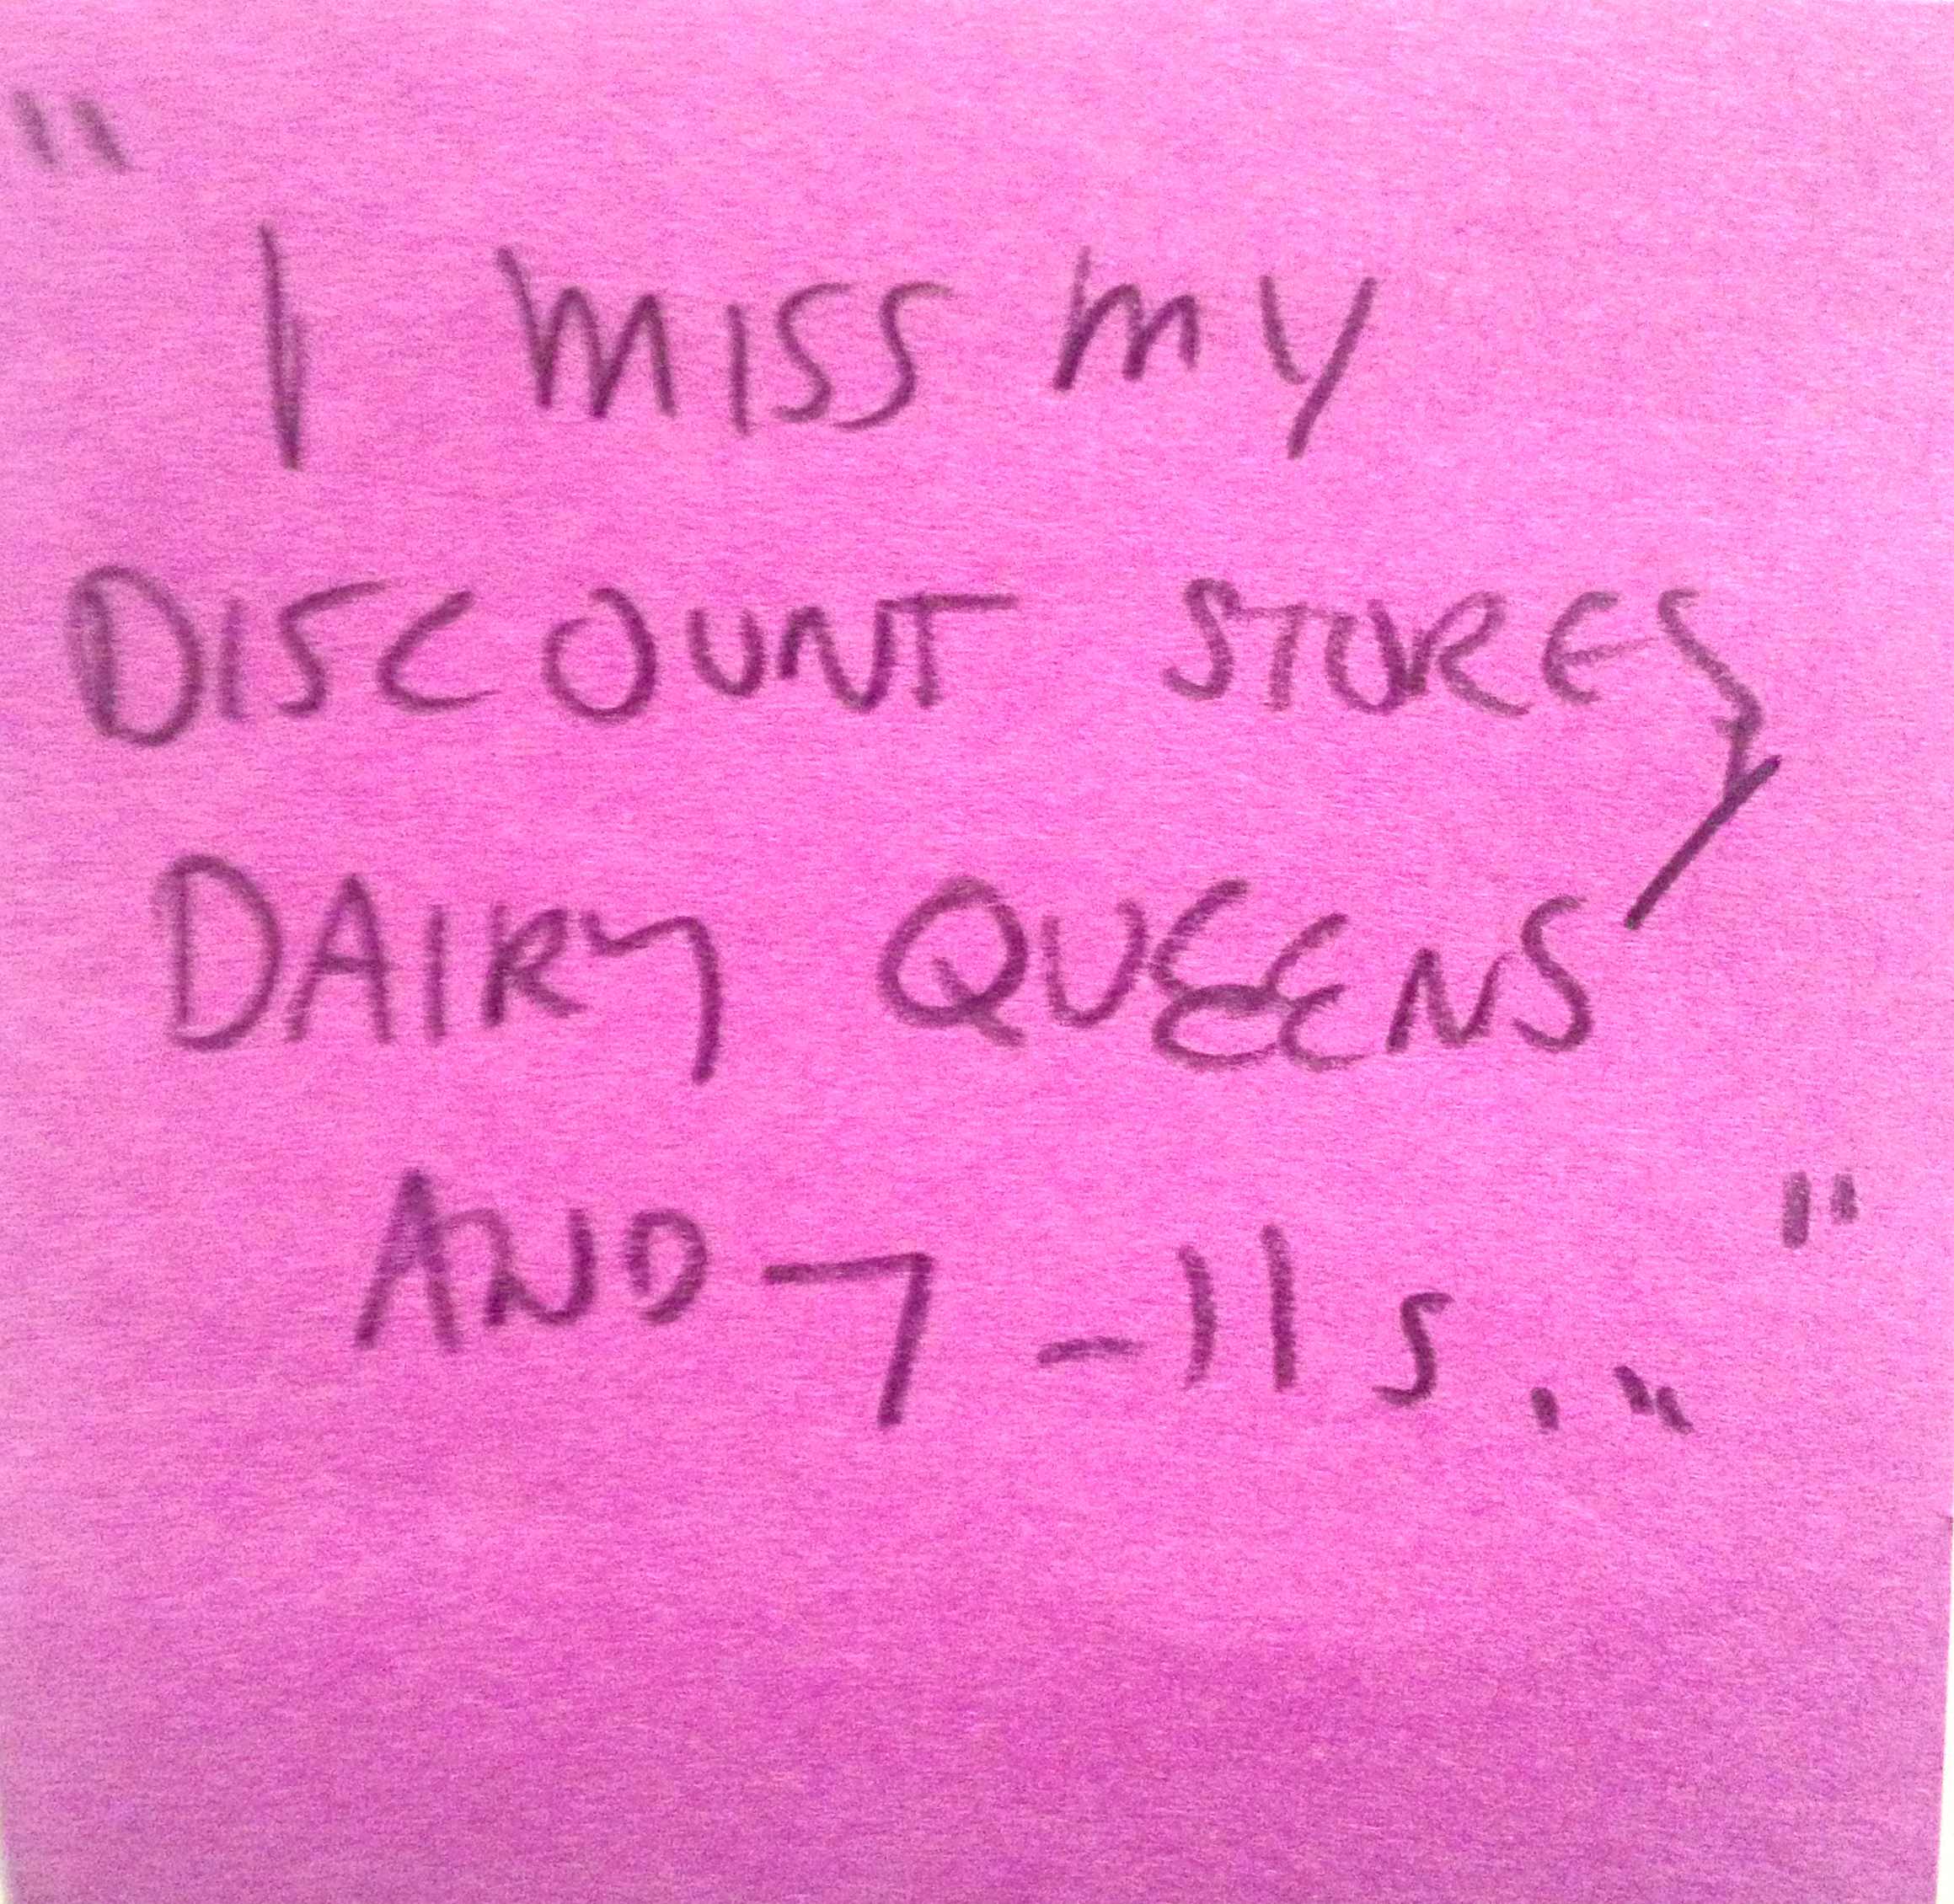 "
I MISS MY
DISCOUNT STORES,
DAIRY QUEENS
AND 7-11s..."